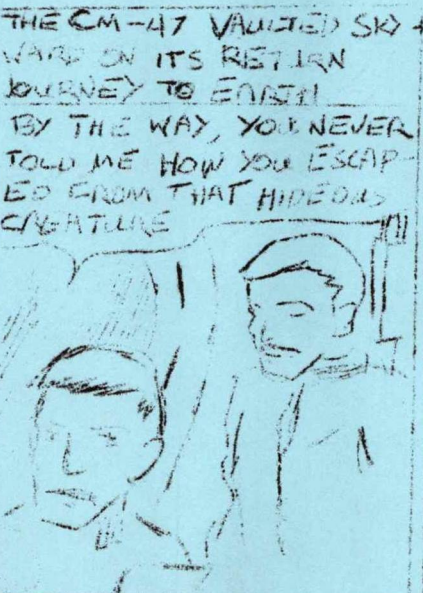 THE CM-47 VAULTED SKY
WARD ON ITS RETURN
JOURNEY TO EARTH
BY THE WAY, YOU NEVER
TOLD ME HOW YOU ESCAP-
ED FROM THAT HIDEOUS
CREATURE